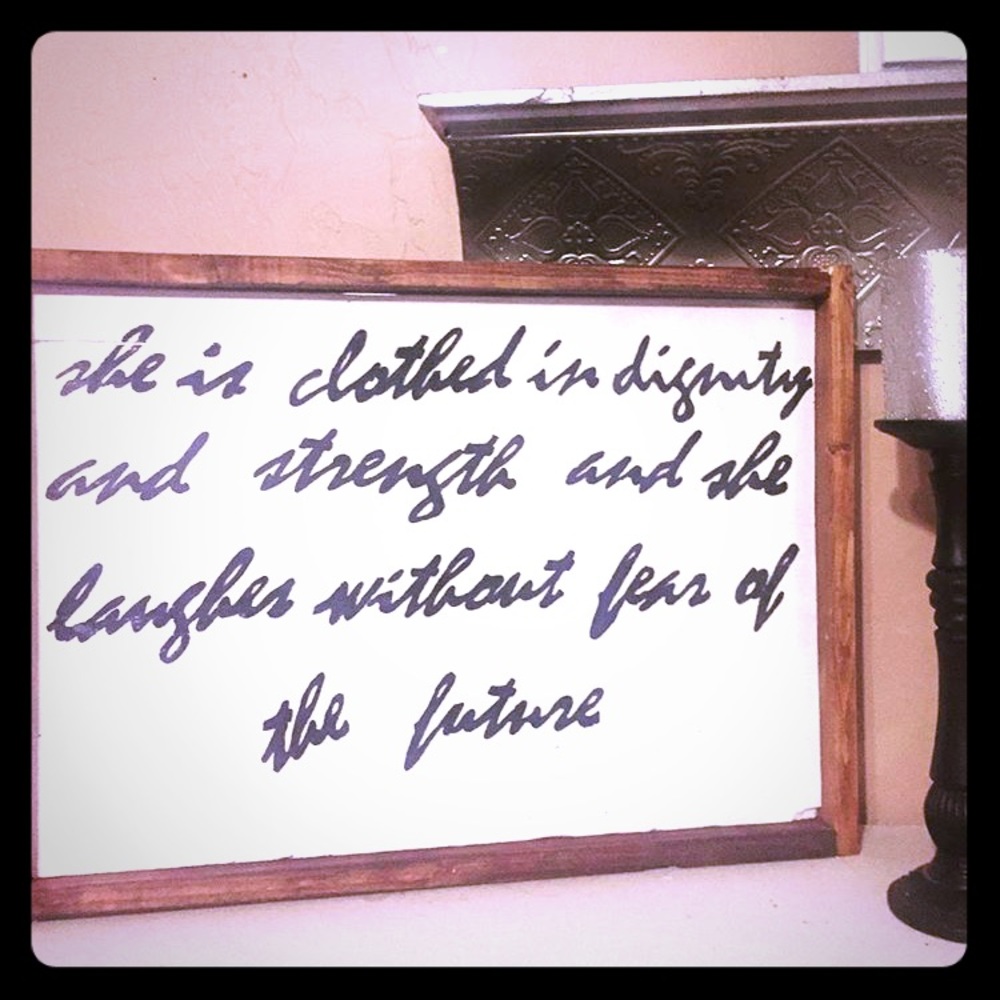 she is clothed in dignity
and strength and she
laughes without fear of
the future